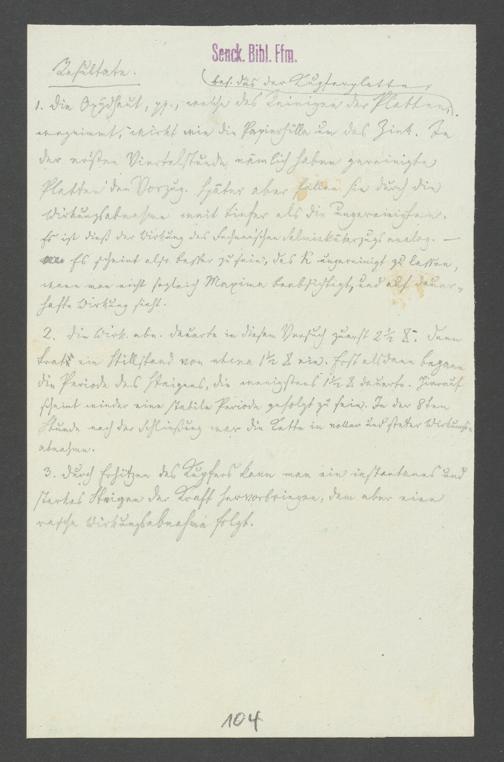 Senck. Bibl. Ffm.
Resultate.
bes. das der Kupferplatte,
1. Die Oxydhaut, pp., welche das Reinigen der Platten
wegnimmt, wirkt wie die Papierhülle um das Zink. In
der ersten Viertelstunde nämlich haben gereinigte
Platten den Vorzug. Später aber fallen sie durch die
Wirkungsabnahme weit tiefer als die ungereinigten.
Es ist dieß der Wirkung des Fechnerschen Salmiaküberzugs analog. —
Es scheint also besser zu sein, das K ungereinigt zu lassen,
wenn man nicht sogleich Maxima beabsichtigt, und auf dauer-
hafte Wirkung sieht.
2. Die Wirk. abn. dauerte in diesem Versuch zuerst 2½ Dann
trat ein Stillstand von etwa 1½ ein. Erst alsdann begann
die Periode des Steigens, die wenigstens 1½ dauerte. Hierauf
scheint wieder eine stabile Periode gefolgt zu sein. In der 8ten
Stunde nach der Schließung war die Kette in voller und steter Wirkungs-
abnahme.
3. Durch Erhitzen des Kupfers kann man ein instantanes und
starkes Steigen der Kraft hervorbringen, dem aber eine
rasche Wirkungsabnahme folgt.
104